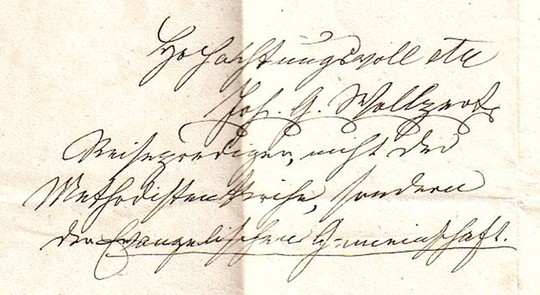 Hochachtungsvoll etc
Joh. G. Wollpert,
Reiseprediger, nicht der
Methodistenkirche, sondern
der Evangelischen Gemeinschaft.